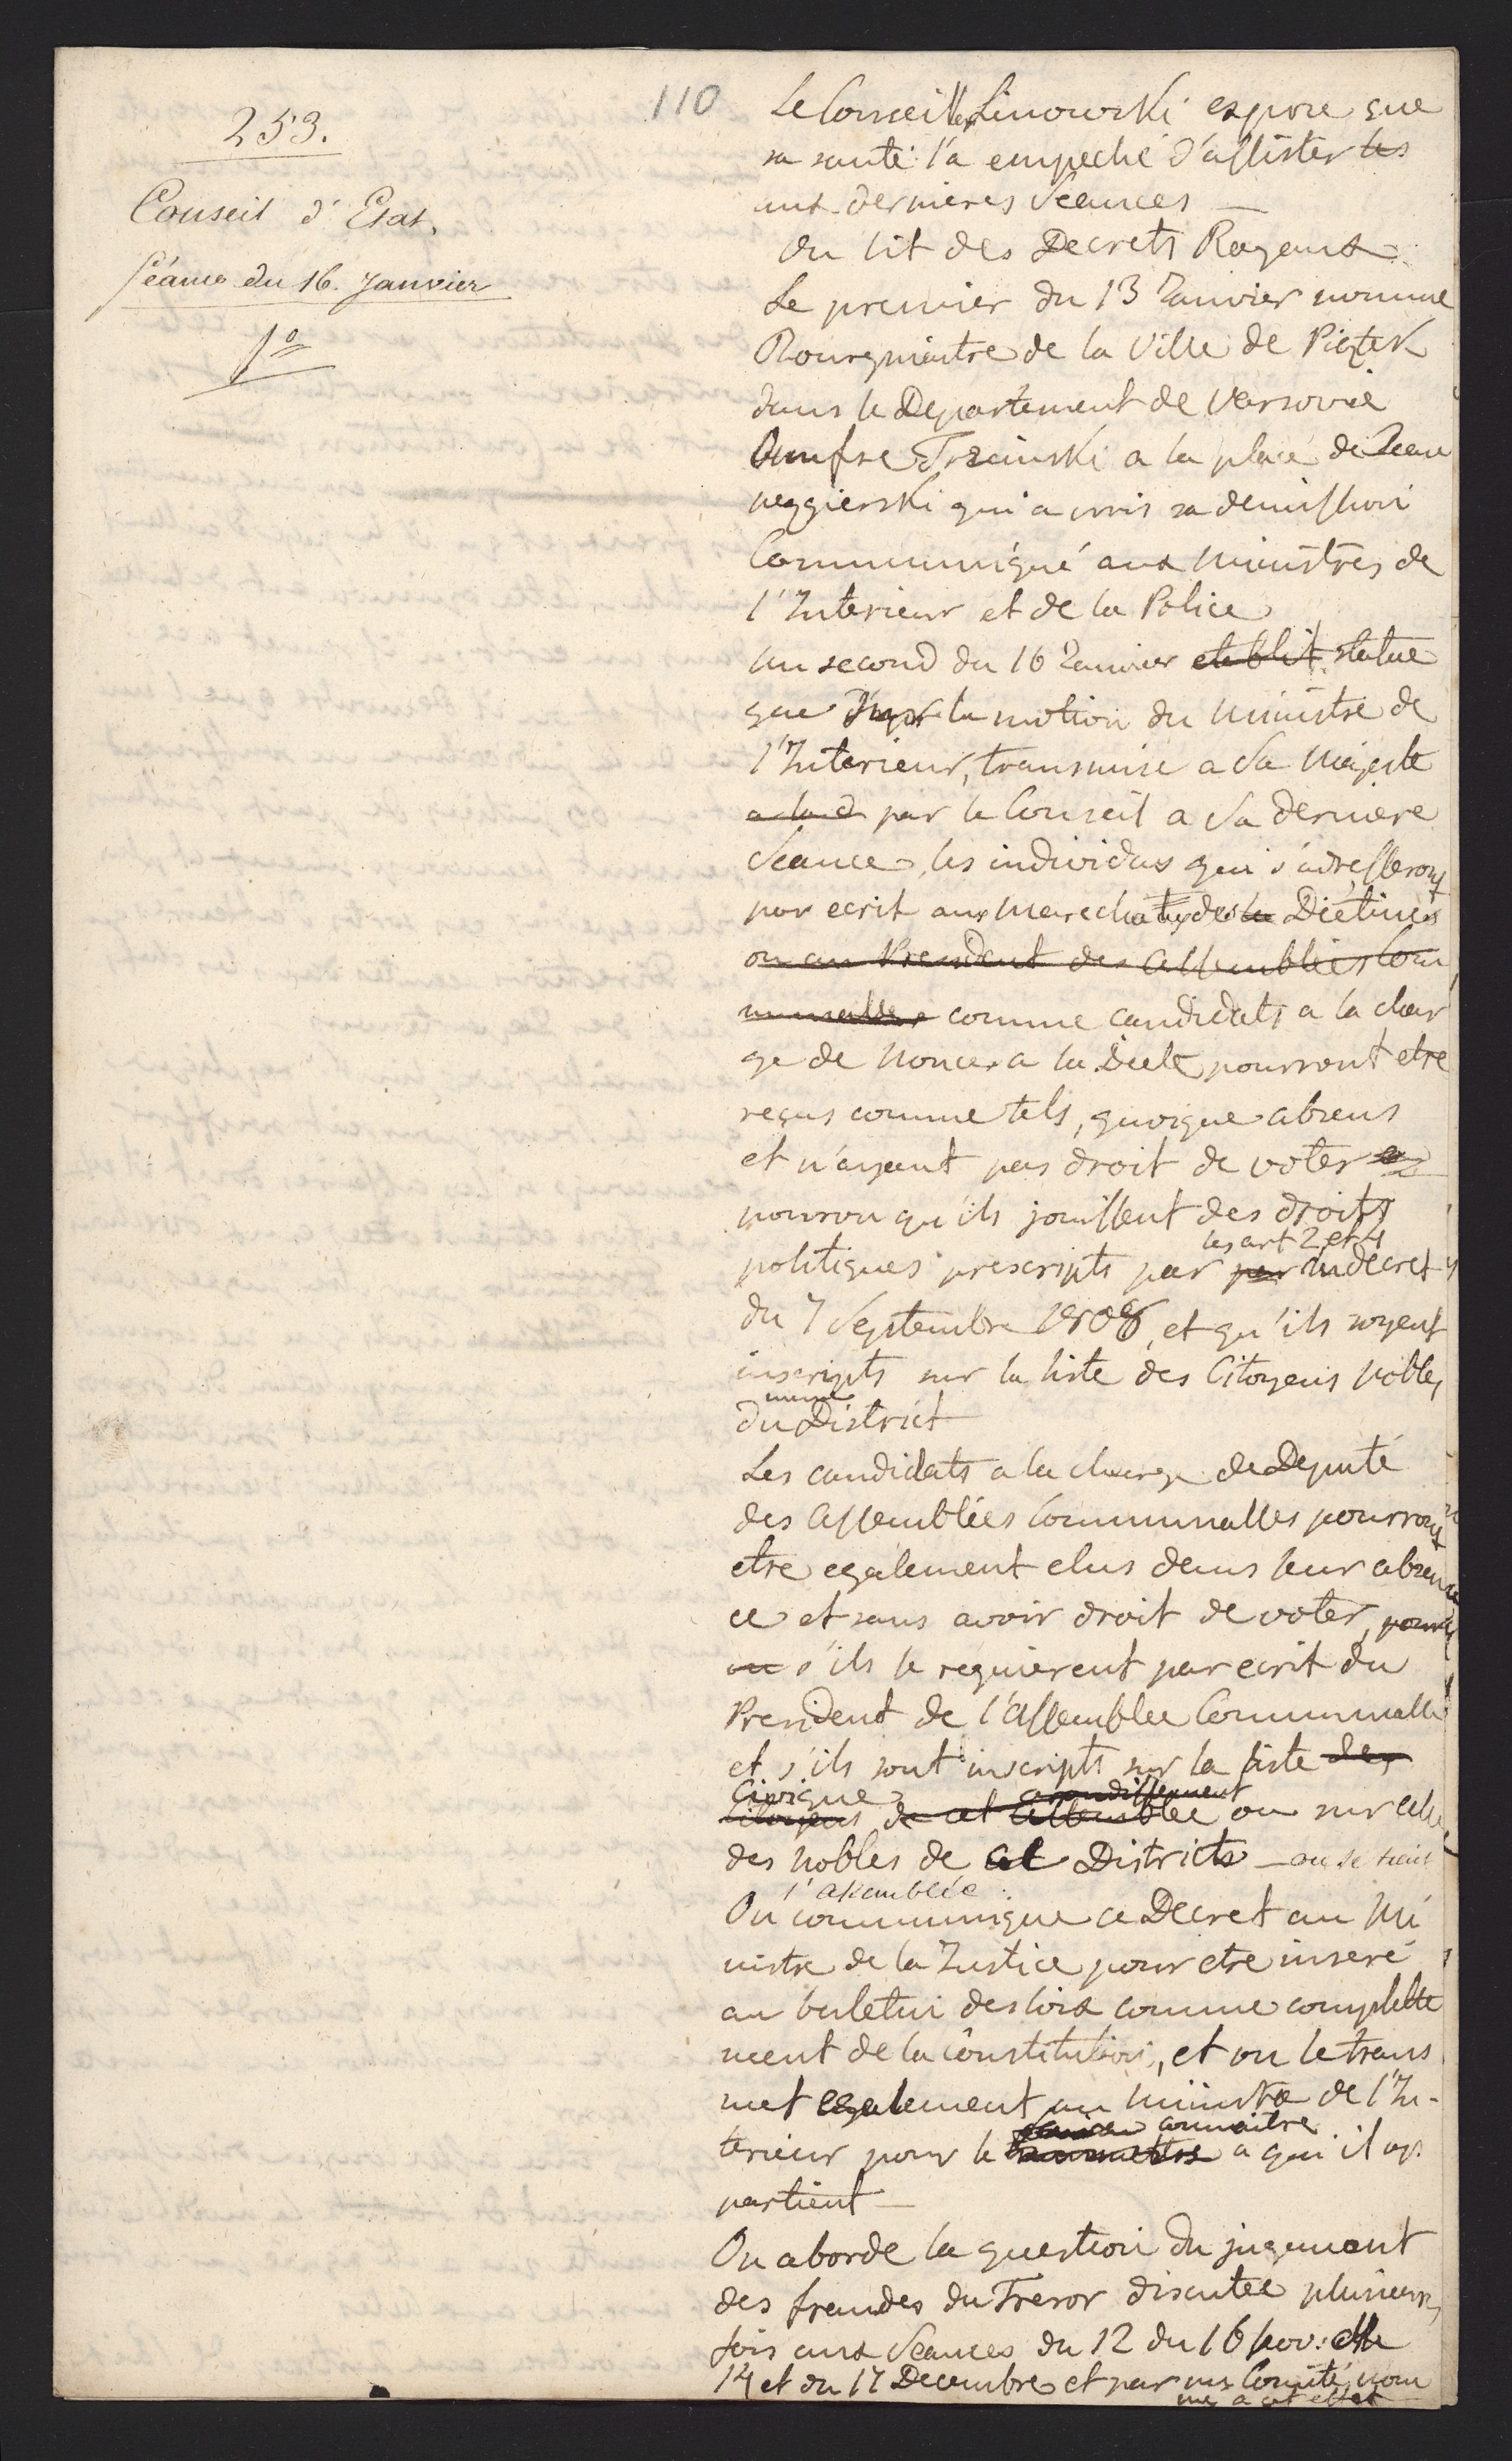 110
253.
Conseil d'Etat.
Séance du 16. Janvier
1º
Le Conseiller Linowski expose que
sa santé l'a empeché d'assister les
aux dernieres Séances —
On lit des Decrets Royaux.
Le premier du 13 Janvier nomme
Bourgmintre de la Ville de Piątek
dans le Departement de Varsovie
Onufre Trzcinski a la place de Jean
Weggierski qui a mis sa demission
Communiqué aux Ministres de
l'Interieur et de la Police
Un second du 16 Janvier etablit statue
que sur la motion du Ministre de
l'Interieur, transmise a Sa Majesté
a la d par le Conseil a Sa derniere
Seance, les individus qui s'adresseront
par ecrit aux Marechaux des la Diétines
ou au President des Assemblées Com
munalles comme candidats a la char
ge de Nonce a la Diete pourront etre
reçus comme tels, quoique absens
et n'ayant pas droit de voter
pourvu qu'ils jouissent des droits
les art 2 et 4
politiques prescripts par par du decret
du 7 Septembre 1808, et qu'ils soyent
inscripts sur la liste des Citoyens Nobles
meme
du District
Les candidats a la charge de Deputé
des Assemblées Communalles pourront
etre egalement elus dans leur absen
ce et sans avoir droit de voter, pourv
vu s'ils le requierent par ecrit du
President de l'Assemblee Communalle
et s'ils sont inscripts sur la liste des
Civique arondissement
Citoyens de cet Assemblee ou sur celle
des Nobles de cet Districts — ou se tient
l'assemblée.
On communique ce Decret au Mi
nistre de la Justice pour etre inseré
au buletin des loix comme complette
ment de la constitution, et on le trans
met egalement au Ministre de l'In-
faire connaitre
terieur pour le transmettre a qui il ap
partient —
On aborde la question du jugement
des fraudes du Tresor discutée plusieurs
fois aux Seances du 12 du 16 Nov: du
14 et du 17 Decembre et par un Comité nom
mé a cet effet